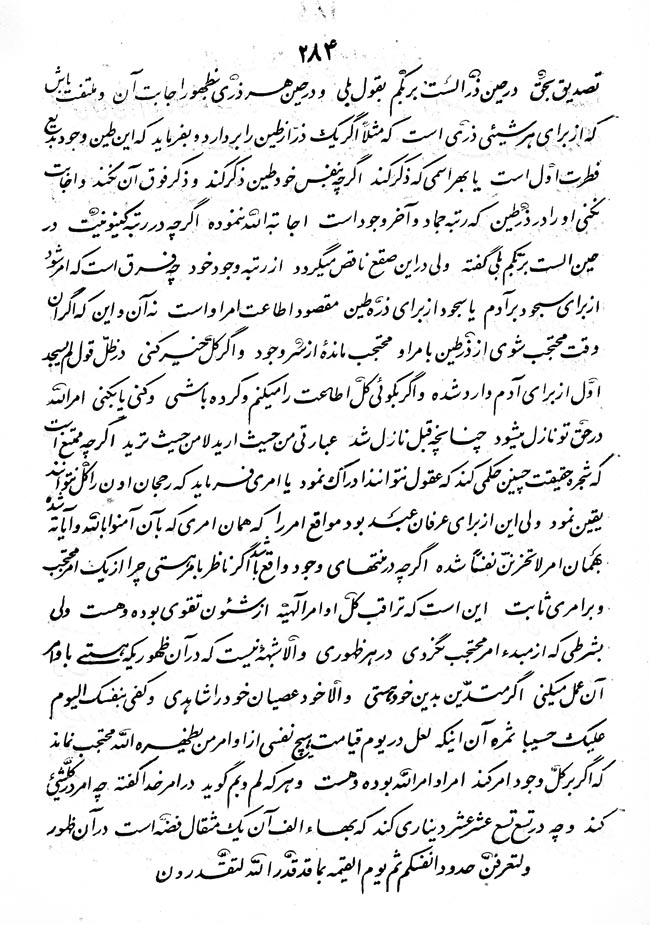 ۲۸۴
تصدیق بحق در حین ذر الست بربکم بقول بلی و در حین هر ذری بظهور اجابت آن و ملتفت باش
که از برای هر شیئی ذری است که مثلا اگر یک ذر از طین را بردارد و بفرماید که این طین وجود بدیع
فطرت اول است یا بهر اسمی که ذکر کند اگرچه بنفس خود طین ذکر کند و ذکر فوق آن نکند و اجابت
نکنی او را در ذر طین که رتبه جماد و آخر وجود است اجابة الله ننموده اگرچه در رتبه کینونیت در
حین الست بربکم بلی گفته ولی در این صقع ناقص میگردد از رتبه وجود خود چه فرق است که امر شود
از برای سجود بر آدم یا سجود از برای ذره طین مقصود اطاعت امر او است نه آن و این که اگر آن
وقت محتجب شوی از ذر طین بامر او محتجب مانده از سر وجود و اگر کل خیر کنی در ظل قول لم اسجد
اول از برای آدم وارد شده و اگر بگوئی کل اطاعت را میکنم و کرده باشی و کنی یا بکنی امر الله
در حق تو نازل میشود چنانچه قبل نازل شد عبارتی من حیث ارید لا من حیث ترید اگرچه ممتنع است
که شجره حقیقت چنین حکمی کند که عقول نتوانند ادراک نمود یا امری فرماید که رجحان اون را کل نتوانند
یقین نمود ولی این از برای عرفان عبد بود مواقع امر را که همان امری که بآن آمنوا بالله و آیاته شده
بهمان امر لا تحزنن نفسا شده اگرچه در منتهای وجود واقع باشد اگر ناظر بامر هستی چرا از یک امر محتجب
و بر امری ثابت این است که تراقب کل اوامر الهیه از شئون تقوی بوده و هست ولی
بشرطی که از مبدء امر محتجب نگردی در هر ظهوری و الا شبهه نیست که در آن ظهوریکه هستی باوامر
آن عمل میکنی اگر متدین بدین خود هستی و الا خود عصیان خود را شاهدی و کفی بنفسک الیوم
علیک حسیبا ثمره آن اینکه لعل در یوم قیامت هیچ نفسی از اوامر من یظهره الله محتجب نماند
که اگر بر کل وجود امر کند امر او امر الله بوده و هست و هر که لم و بم گوید در امر خدا گفته چه امر در کلشیئ
کند و چه در تسع تسع عشر عشر دیناری کند که بهاء الف آن یک مثقال فضه است در آن ظهور
ولتعرفن حدود انفسکم ثم یوم القیمة بما قد قدر الله لتقدرون